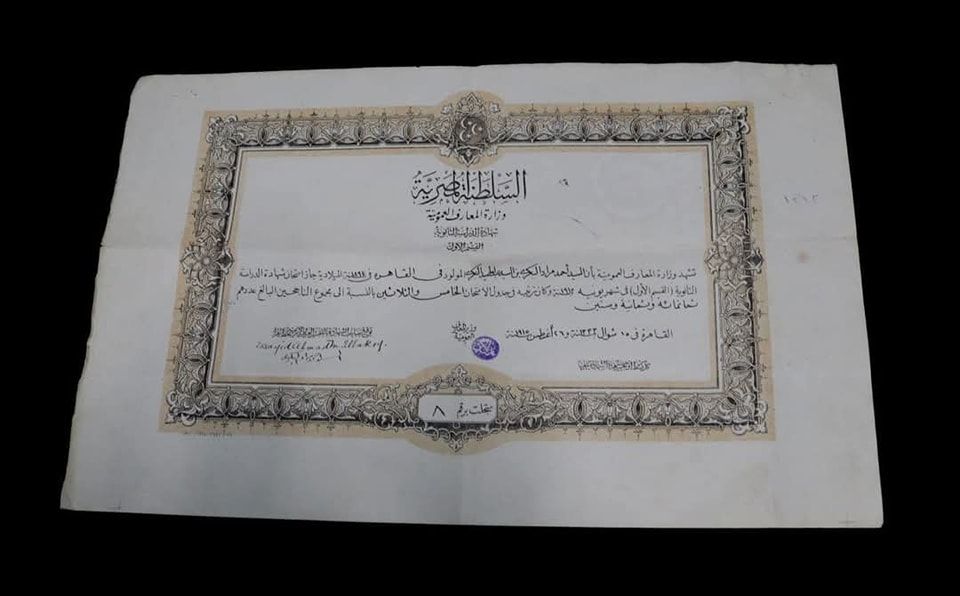 السلطنة المصرية
وزارة المعارف العمومية
شهادة الدراسة الثانوية
القسم الأول
تشهد وزارة المعارف العمومية بأن السيد أحمد مراد البكرى بن السيد البكرى المولود فى القاهرة فى سنة الميلادية جاز امتحان شهادة الدراسة
الثانوية (القسم الأول) فى شهر يونيه سنة وكان ترتيبه فى جدول الامتحان الخامس والثلاثين بالنسبة الى مجموع الناجحين البالغ عددهم
ثمانمائة وثمانية وستين
القاهرة فى ١٥ شوال سنة و ٢٦ أغسطس سنة
وزير المعارف
العمومية
سجلت برقم ٨